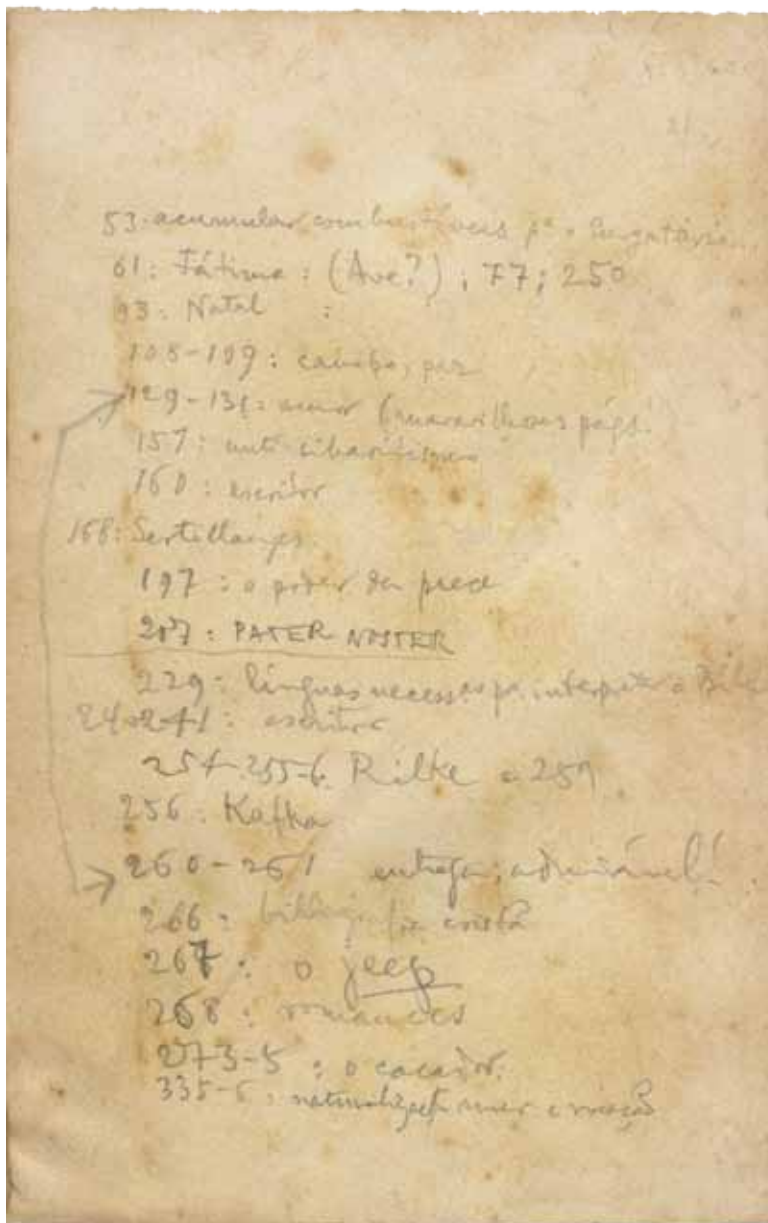 53: acumular combustíveis pª o Purgatório
61: Fátima: (Ave?); 77; 250
93: Natal :
108-109: campo, paz
129-131: amor (maravilhosas págs.
157: anti-sibaritismo
160: escritor
168: Sertillanges
197: o poder da prece
207: PATER NOSTER
229: línguas necessas pa. interpretar a
240-241: escritor
254-255-6. Rilke e 259
256: Kafka
260-261 entrega; admirável!
266: bibliografia cristã
267: o jeep
268: romances
273-5: o caçador.
335-6: amor e